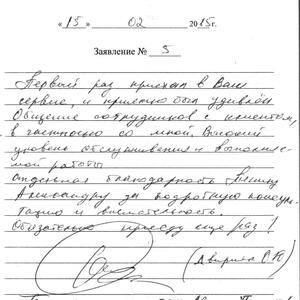 « 15 » 02 2015г.
Заявление № 5
Первый раз приехал в Ваш
сервис, и приятно был удивлён
Общение сотрудников с клиентом,
в частности со мной. Высокий
уровень обслуживания и выполняе-
мой работы
Отдельная благодарность
Александру за подробную консуль-
тацию и внимательность.
Обязательно приеду ещё раз!